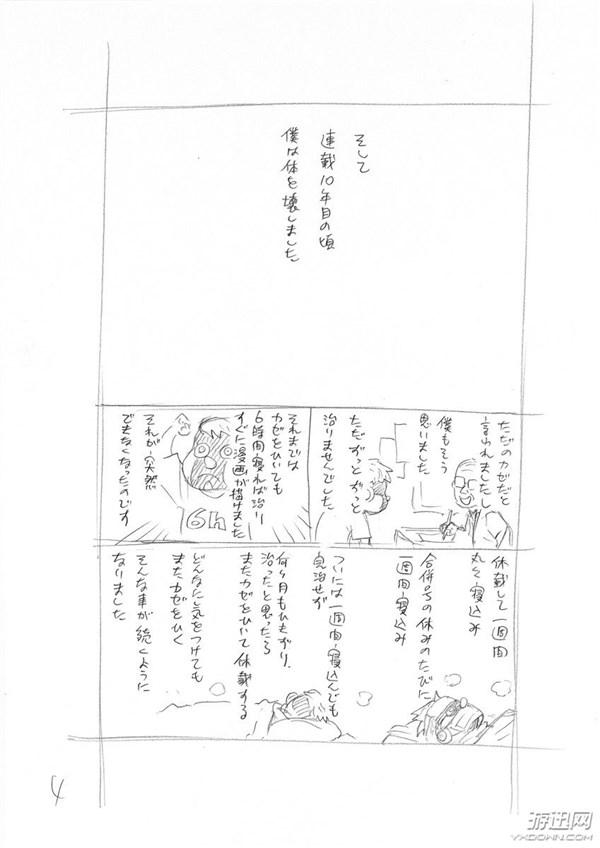 そして
連載10年目の頃
僕は体を壊しました
ただのカゼだと
言われましたし
僕もそう
思いました
ただずっとずっと
治りませんでした
それまでは
カゼをひいても
6時間寝れば治り
すぐに漫画が描けました
それが突然
できなくなったのです
6h
休載して一週間
丸々寝込み
合併号の休みのたびに
一週間寝込み
ついには一週間寝込んでも
完治せず
何ヶ月もひきがり、
治ったと思ったら
またカゼをひいて休載する
どんなに気をつけても
またカゼをひく
そんな事が続くように
なりました
4
游迅网
YXDOWN.COM